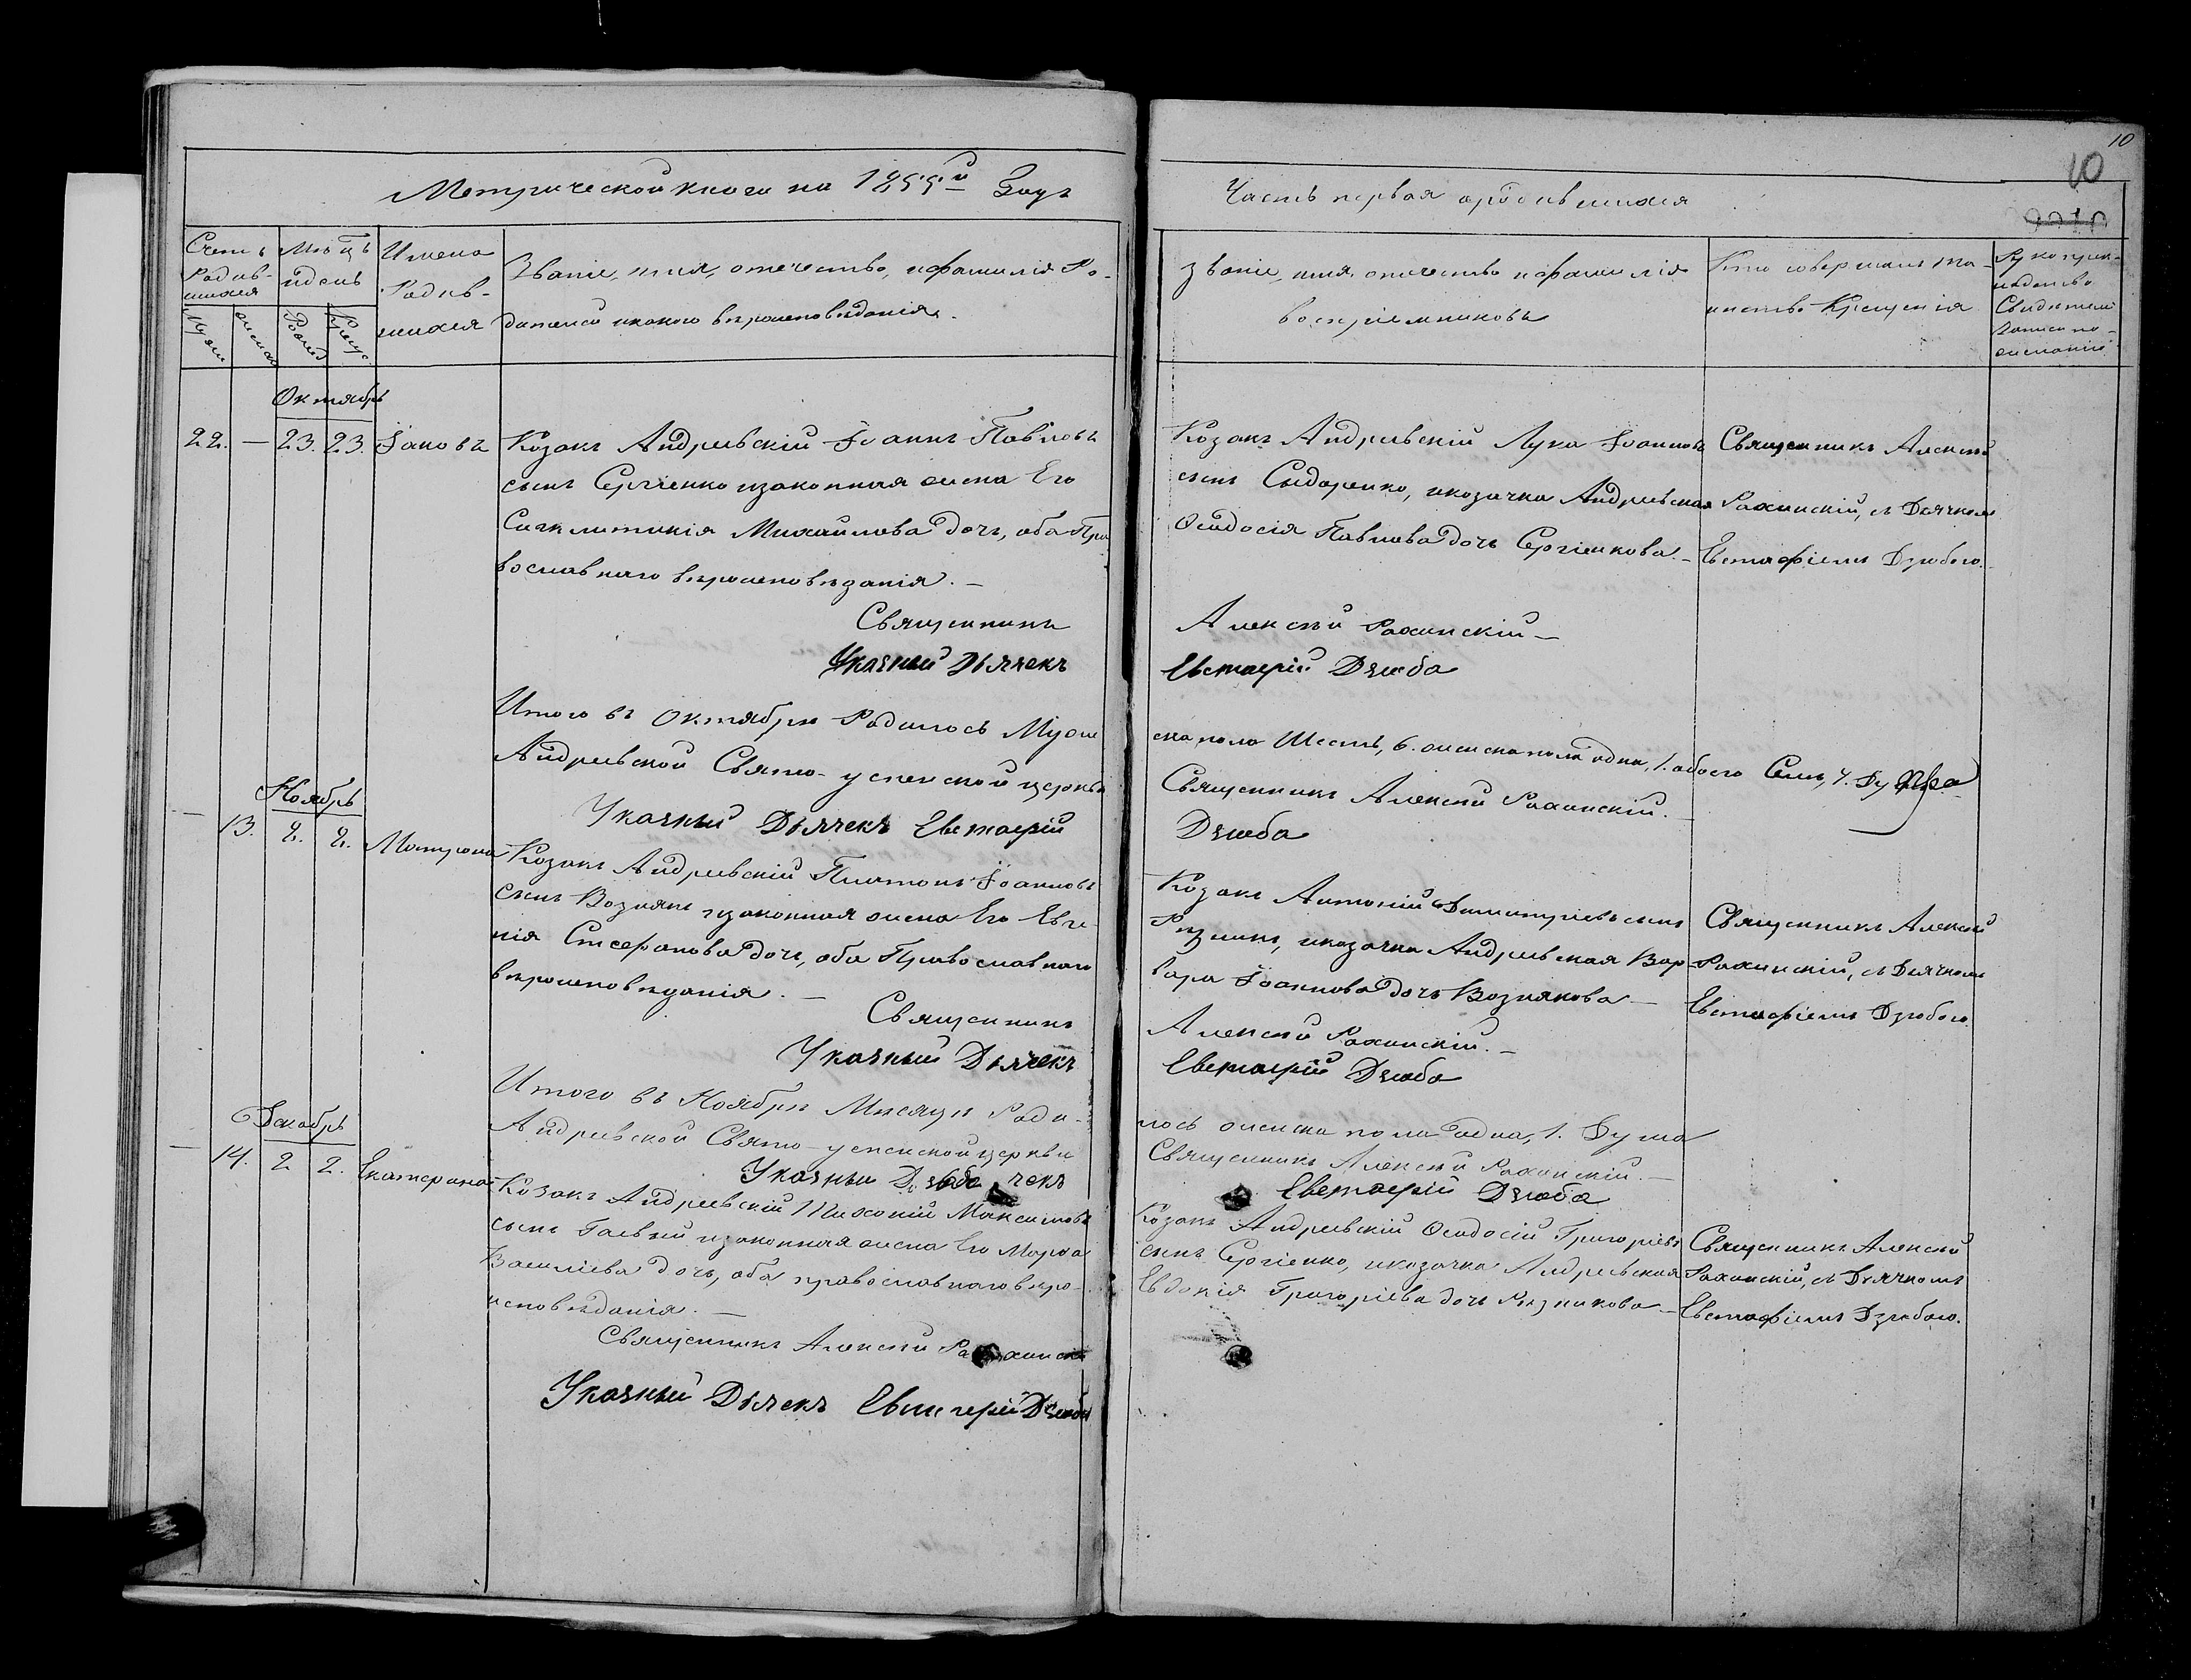 Метрической книги на 1855й Годъ
Счетъ Родив-шихся
Мѣ-цъ и день
Имена Родив-шихся
Званіе, имя, отечество, и фамилія Ро-
дителей и какого вѣроисповѣданія.
Муж. женск. Рожд. Крещ.
Октябрь
22. — 23. 23. Іаковъ
Козакъ Андреевскій Іоаннъ Павловъ
сынъ Сергіенко и законная жена Его
Синклитикія Михайлова дочь, оба Пра
вославнаго вѣроисповѣданія. —
Священникъ
Указный Дьячекъ
Итого въ Октябрѣ Родилось Муже
Андреевской Свято-успенской церкви
Указный Дьячекъ Евстафій
Ноябрь
— 13. 2. 2. Матрона
Козакъ Андреевскій Платонъ Іоанновъ
сынъ Вознякъ и законная жена Его Евге-
нія Стефанова дочь, оба Православнаго
вѣроисповѣданія. —
Священникъ
Указный Дьячекъ
Итого въ Ноябрѣ Мѣсяцѣ Роди-
Андреевской Свято-успенской церкви
Указный Дьячекъ
Декабрь
— 14. 2 2. Екатерина
Козакъ Андреевскій Максимовъ
сынъ Гаевый и законная жена Его Марѳа
Василіева дочь, оба православнаго вѣро-
исповѣданія. —
Священникъ Алексѣй Рахинскій
Указный Дьячекъ Евстафій Дзюба
10
10
Часть первая о родившихся
Званіе, имя, отечество и фамилія
воспріемниковъ
Кто совершалъ та-
инство Крещенія
Рукоприк-
ладство
Свидѣтелей
записи по
желанію
Козакъ Андреевскій Лука Іоанновъ
сынъ Сидоренко, и козачка Андреевская
Ѳеодосія Павлова дочь Сергіенкова. —
Священникъ Алексѣй
Рахинскій, съ Дьячкомъ
Евстафіемъ Дзюбою.
Алексѣй Рахинскій —
Евстафій Дзюба
ска пола Шесть, 6. женска пола одна, 1. обоего Семь, 7. Душъ
Священникъ Алексѣй Рахинскій. —
Дзюба
Козакъ Антоній Димитріевъ сынъ
Рѣзникъ, и козачка Андреевская Вар-
вара Іоаннова дочь Вознякова —
Священникъ Алексѣй
Рахинскій, съ Дьячкомъ
Евстафіемъ Дзюбою.
Алексѣй Рахинскій. —
Евстафій Дзюба
лось женска пола одна, 1. Душа
Священникъ Алексѣй Рахинскій. —
Евстафій Дзюба
Козакъ Андреевскій Ѳеодосій Григоріевъ
сынъ Сергіенко, и козачка Андреевская
Евдокія Григоріева дочь Рѣзникова —
Священникъ Алексѣй
Рахинскій, съ Дьячкомъ
Евстафіемъ Дзюбою.